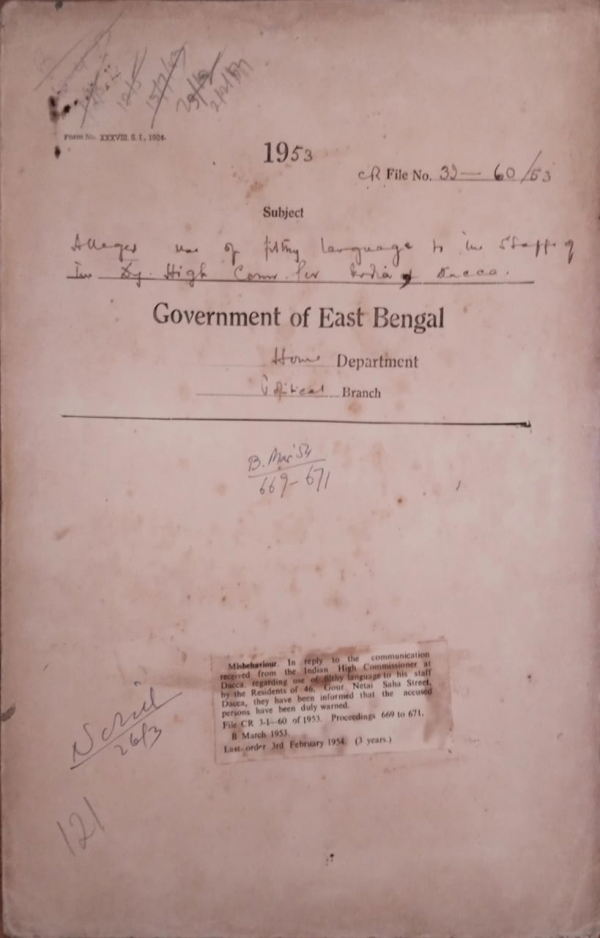 12/5
29/10
Form No. XXXVIII. S. I., 1924.
1953
CR File No. 3I — 60/53
Subject
Alleged use of filthy language to the staff of
the Dy. High Comr. for India, Dacca.
Government of East Bengal
Home Department
Political Branch
B. Mar '54
669–671
Misbehaviour. In reply to the communication
received from the Indian High Commissioner at
Dacca, regarding use of filthy language to his staff
by the Residents of 46, Gour Netai Saha Street,
Dacca, they have been informed that the accused
persons have been duly warned.
File CR 3-I—60 of 1953. Proceedings 669 to 671.
B March 1953.
Last order 3rd February 1954. (3 years.)
26/3
121